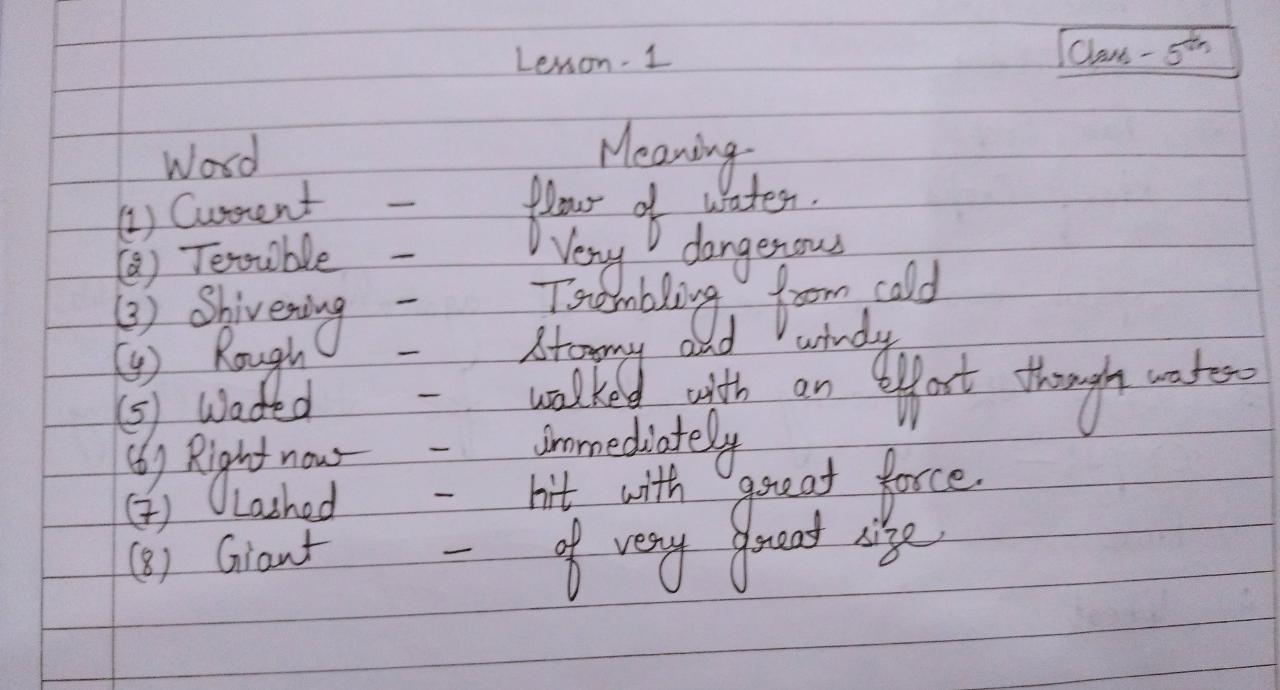 Lesson - 1 Class - 5th
Word Meaning
(1) Current - flow of water.
(2) Terrible - Very dangerous
(3) Shivering - Trembling from cold
(4) Rough - Stormy and windy
(5) Waded - walked with an effort through water
(6) Right now - immediately
(7) Lashed - hit with great force.
(8) Giant - of very great size.